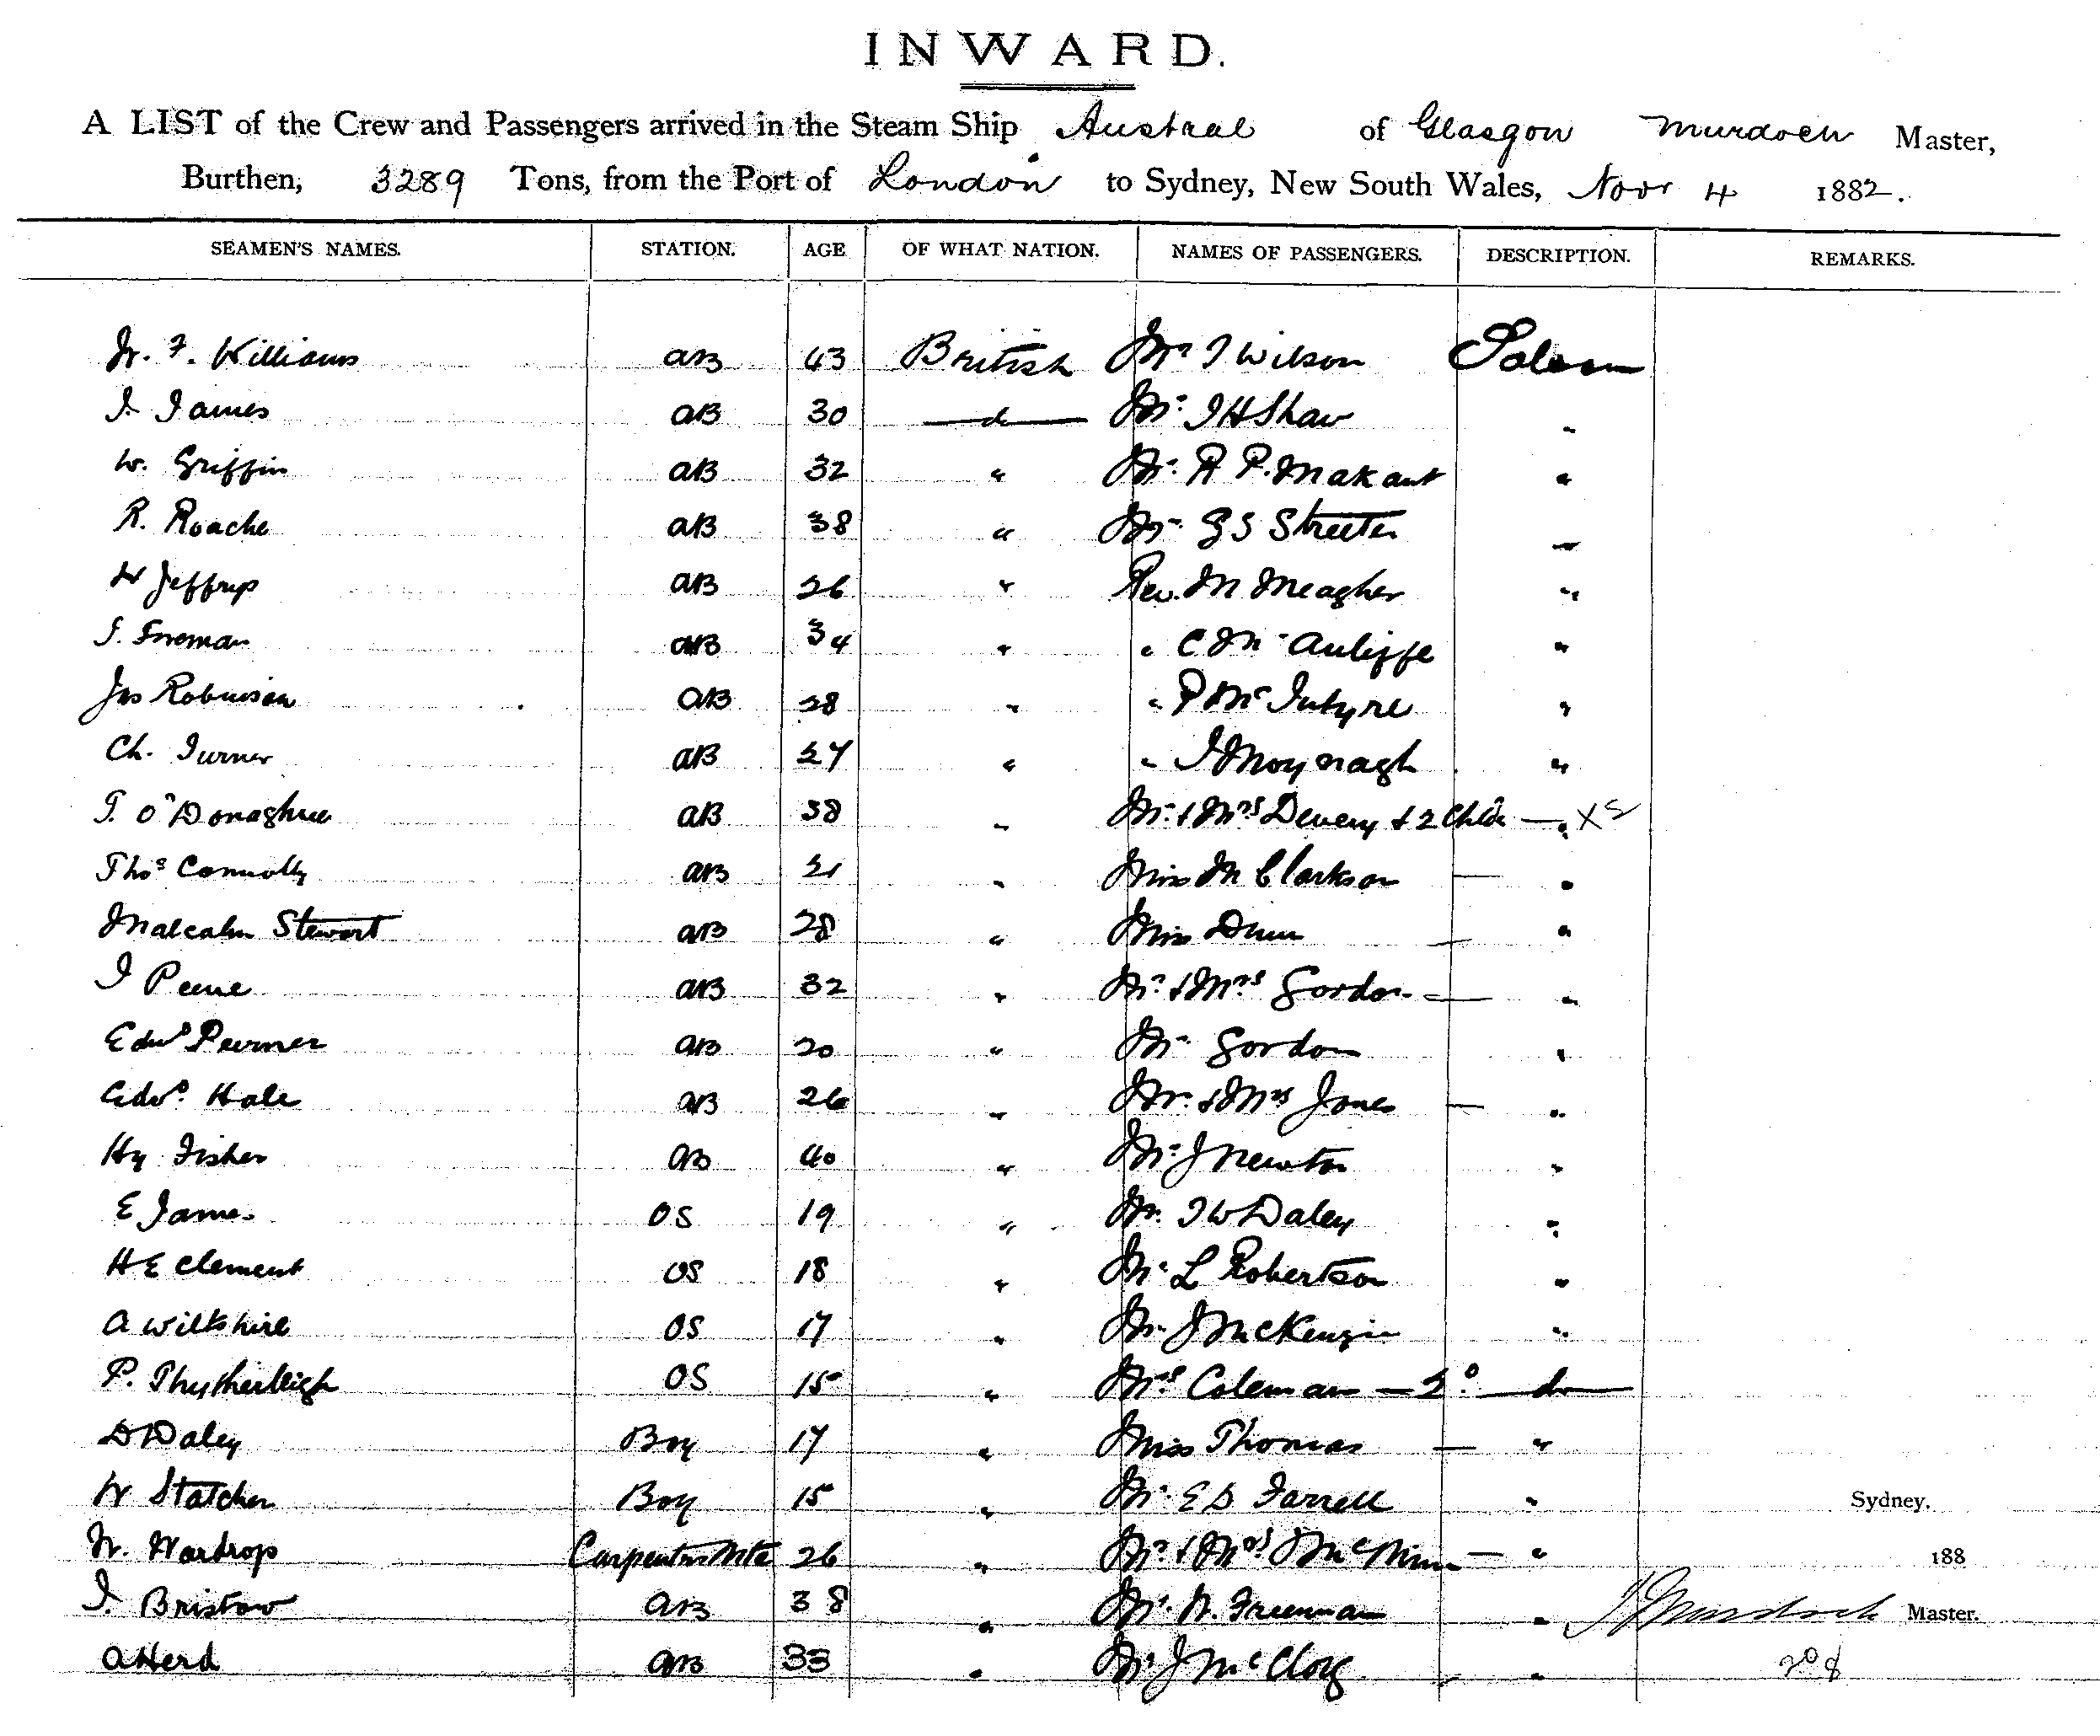 INWARD.
A LIST of the Crew and Passengers arrived in the Steam Ship Austral of Glasgow Murdoch Master,
Burthen, 3289 Tons, from the Port of London to Sydney, New South Wales, Novr 4 1882.
SEAMEN'S NAMES. STATION. AGE OF WHAT NATION. NAMES OF PASSENGERS. DESCRIPTION. REMARKS.
W. F. Williams AB 43 British Mr J Wilson Saloon
J. James AB 30 d Mr. J H Shaw "
W. Griffin AB 32 " Mr. R P. Makant "
R. Roache AB 38 " Mr G S Streeter "
W Jeffrys AB 26 " Rev. M Meagher "
J. Freeman AB 34 " " C Mc Auliffe "
Jas Robinson AB 28 " " P Mc Intyre "
Ch. Turner AB 27 " " J Moynagh "
T. O'Donaghue AB 38 " Mr. & Mrs Devery & 2 Chldn — " X
Thos Connolly AB 21 " Miss M Clarkson — "
Malcolm Stewart AB 28 " Miss Dunn — "
J Peene AB 32 " Mr. & Mrs Gordon — "
Edwd AB 20 " Mr Gordon "
Edwd. Hale AB 26 " Mr. & Mrs Jones — "
Hy Fisher AB 40 " Mr. J Newton "
E James OS 19 " Mr. J W Daley "
H E Clement OS 18 " Mr. L Robertson "
A Wiltshire OS 17 " Mr. J McKenzie "
P. Phytherleigh OS 15 " Mrs Coleman — 2d. do
D Daley Boy 17 " Miss Thomas — "
W Statcher Boy 15 " Mr. E D Farrell " Sydney.
W. Wardrop Carpenters Mte 26 " Mr. & Mrs — " 188
J. Bristow AB 38 " Mr. W. Freeman " J Murdoch Master.
A Herd AB 33 " Mr. J McCloy "